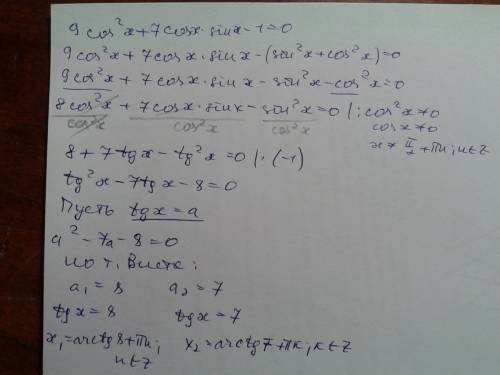 9cos²x+7cosx·sinx-1=0
9cos²x+7cosx·sinx-(sin²x+cos²x)=0
9cos²x+7cosx·sinx-sin²x-cos²x=0
8cos²x+7cosx·sinx-sin²x=0 |: cos²x≠0
cos²x cos²x cos²x cosx≠0
x≠π/2+πn; n∈z
8+7tgx-tg²x=0 |·(-1)
tg²x-7tgx-8=0
Пусть tgx=a
a²-7a-8=0
по т. Виета:
a₁=8 a₂=7
tgx=8 tgx=7
x₁=arctg8+πn; x₂=arctg7+πk; k∈z
n∈z